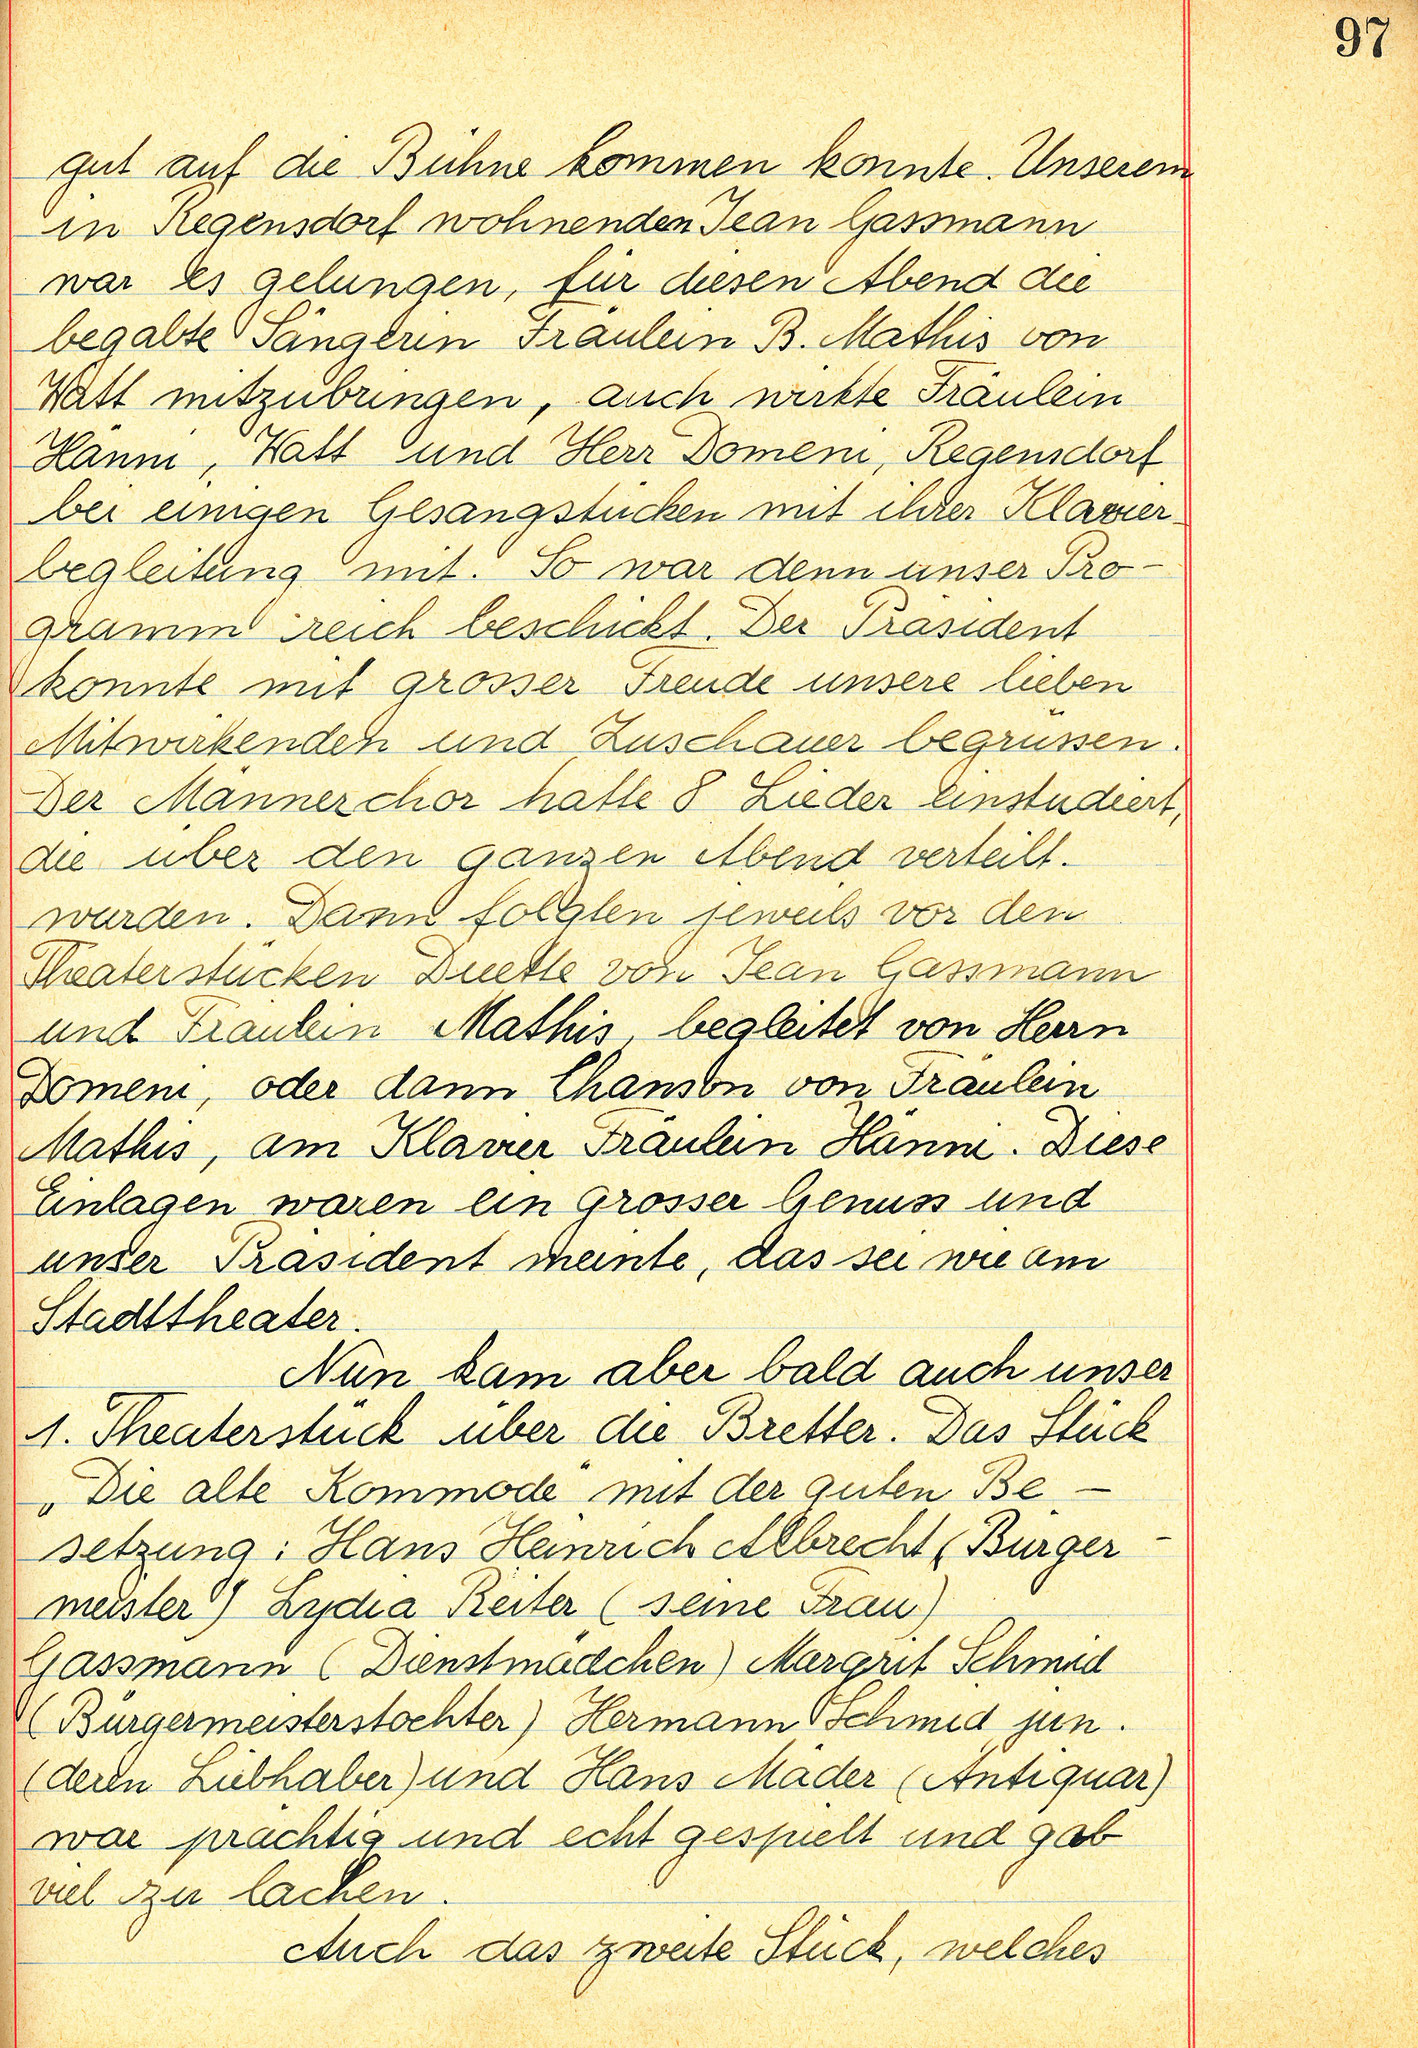 97
gut auf die Bühne kommen konnte. Unserem
in Regensdorf wohnenden Jean Gassmann
war es gelungen, für diesen Abend die
begabte Sängerin Fräulein B. Mathis von
Watt mitzubringen, auch wirkte Fräulein
Hänni, Watt und Herr Domeni, Regensdorf
bei einigen Gesangstücken mit ihrer Klavier-
begleitung mit. So war denn unser Pro-
gramm reich beschickt. Der Präsident
konnte mit grosser Freude unsere lieben
Mitwirkenden und Zuschauer begrüssen.
Der Männerchor hatte 8 Lieder einstudiert,
die über den ganzen Abend verteilt.
wurden. Dann folgten jeweils vor den
Theaterstücken Duette von Jean Gassmann
und Fräulein Mathis, begleitet von Herrn
Domeni, oder dann Chanson von Fräulein
Mathis, am Klavier Fräulein Hänni. Diese
Einlagen waren ein grosser Genuss und
unser Präsident meinte, das sei wie am
Stadttheater.
Nun kam aber bald auch unser
1. Theaterstück über die Bretter. Das Stück
„Die alte Kommode" mit der guten Be-
setzung: Hans Heinrich Albrecht (Bürger-
meister) Lydia Reiter (seine Frau)
Gassmann (Dienstmädchen) Margrit Schmid
(Bürgermeisterstochter) Hermann Schmid jun.
(deren Liebhaber) und Hans Mäder (Antiquar)
war prächtig und echt gespielt und gab
viel zu lachen.
Auch das zweite Stück, welches